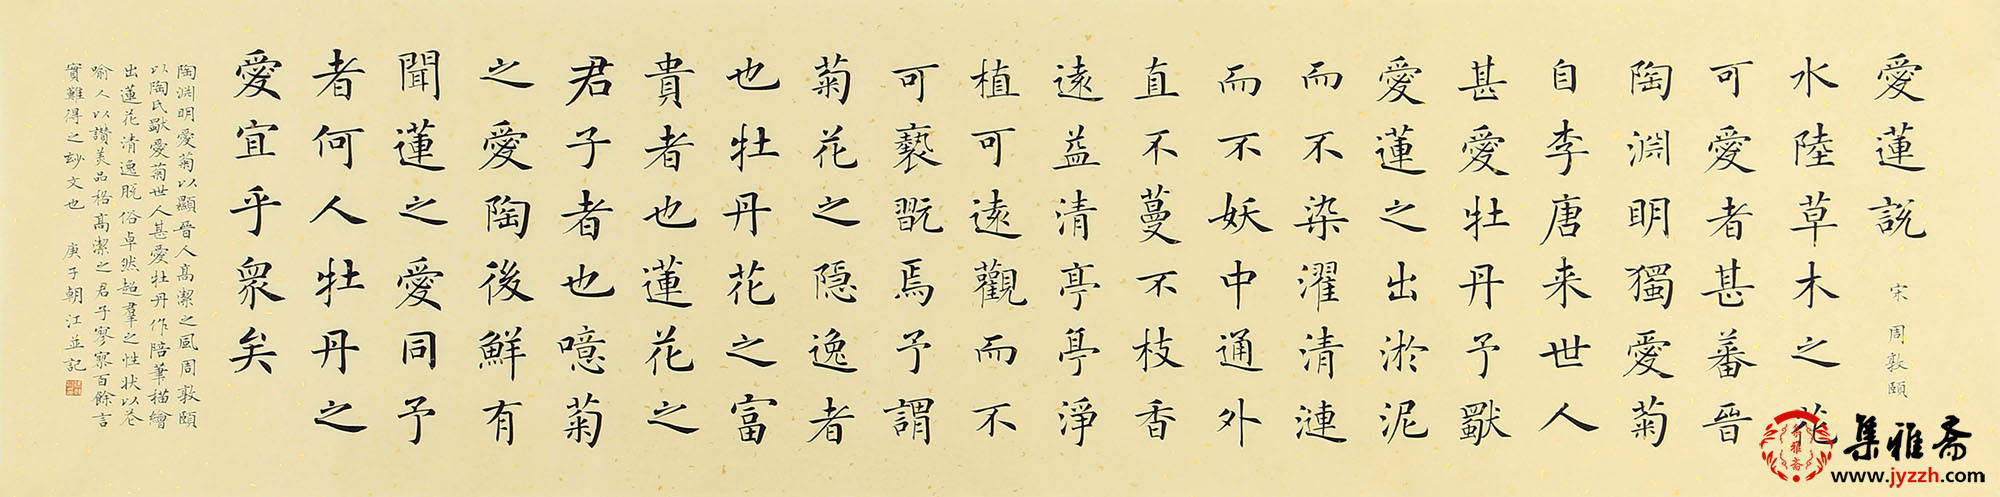 愛蓮說 宋 周敦頤
水陸草木之花
可愛者甚蕃晉
陶淵明獨愛菊
自李唐来世人
甚愛牡丹予獨
愛蓮之出淤泥
而不染濯清漣
而不妖中通外
直不蔓不枝香
遠益清亭亭淨
植可遠觀而不
可褻翫焉予謂
菊花之隱逸者
也牡丹花之富
貴者也蓮花之
君子者也噫菊
之愛陶後鮮有
聞蓮之愛同予
者何人牡丹之
愛宜乎眾矣
陶淵明愛菊以顯晉人高潔之風周敦頤
以陶氏獨愛菊世人甚愛牡丹作陪筆描繪
出蓮花清逸脱俗卓然超羣之性狀以花
喻人以讚美品格高潔之君子寥寥百餘言
實難得之妙文也 庚子朝江並記
集雅斋
www.jyzzh.com